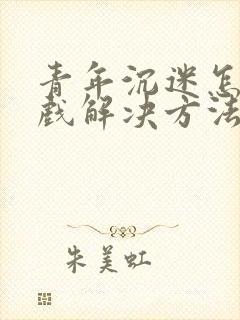 青年沉迷怎
戏解决方法
朱美虹